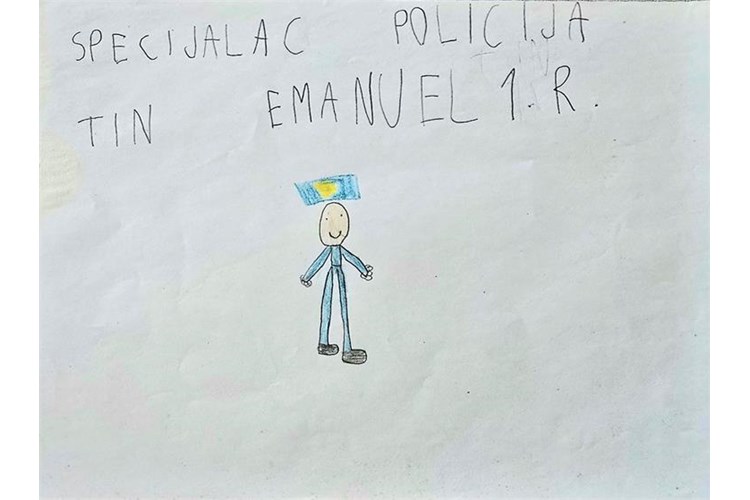 SPECIJALAC POLICIJA
TIN EMANUEL 1. R.